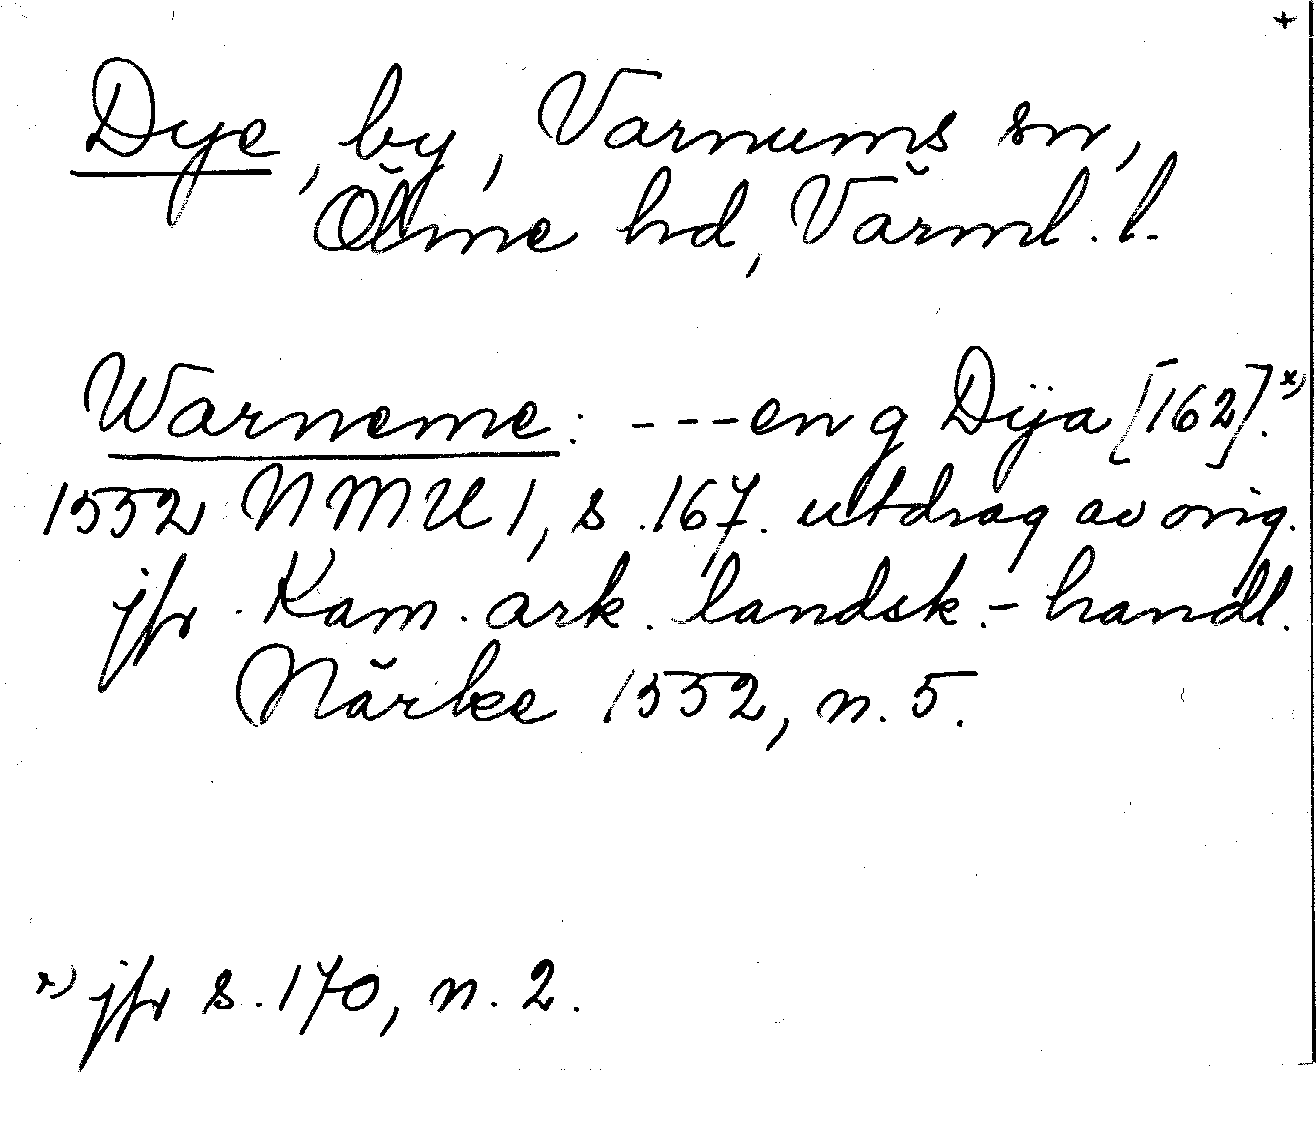 +
Dye, by, Varnums sn,
Ölme hd, Värml. l.
Warneme: ---en g Dÿa [162].x)
1552 NMU 1, s. 167. utdrag av orig.
jfr Kam. ark. landsk.-handl.
Närke 1552, n. 5.
x) jfr s. 170, n. 2.